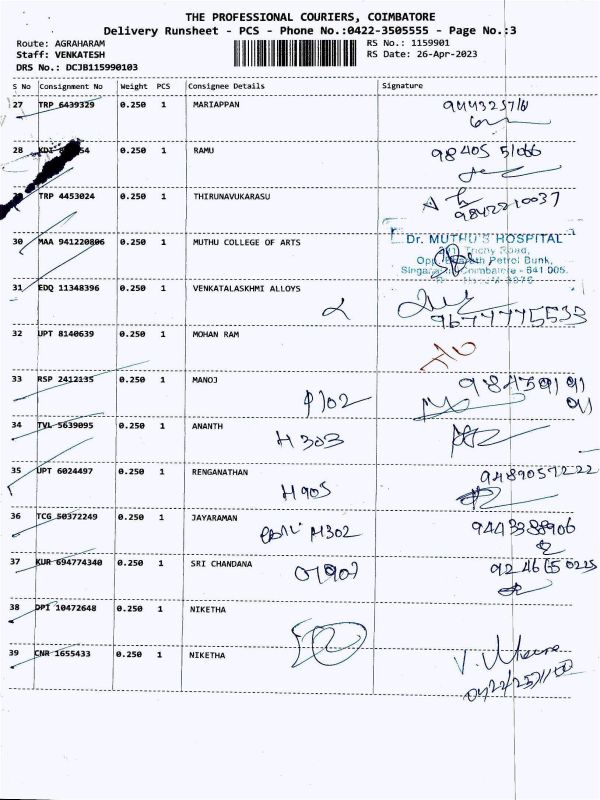 THE PROFESSIONAL COURIERS, COIMBATORE
Delivery Runsheet - PCS - Phone No.:0422-3505555 - Page No.:3
Route: AGRAHARAM RS No.: 1159901
Staff: VENKATESH RS Date: 26-Apr-2023
DRS No.: DCJB115990103
S No Consignment No Weight PCS Consignee Details Signature
27 TRP 6439329 0.250 1 MARIAPPAN
28 KDI 0.250 1 RAMU 98405 51066
TRP 4453024 0.250 1 THIRUNAVUKARASU
9842210037
30 MAA 941220806 0.250 1 MUTHU COLLEGE OF ARTS Dr. MUTHU'S HOSPITAL
Trichy Road,
Petrol Bunk,
Coimbatore - 641 005.
31 EDQ 11348396 0.250 1 VENKATALASKHMI ALLOYS
32 UPT 8140639 0.250 1 MOHAN RAM
33 RSP 2412135 0.250 1 MANOJ
34 TVL 5639095 0.250 1 ANANTH
H 303
35 UPT 6024497 0.250 1 RENGANATHAN 9489057222
H 905
36 TCG 50372249 0.250 1 JAYARAMAN
H302
37 KUR 694774340 0.250 1 SRI CHANDANA
38 DPI 10472648 0.250 1 NIKETHA
39 CNR 1655433 0.250 1 NIKETHA